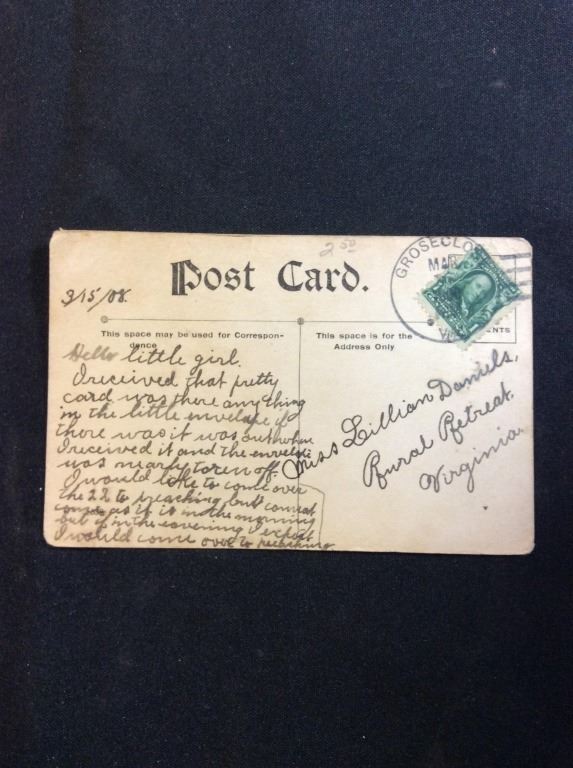 2 50
Post Card.
GROSECLO
MAR
VA
CENTS
3/15/08.
This space may be used for Correspon-
dence
This space is for the
Address Only
Hello little girl.
I received that pretty
card was there any thing
in the little envelope if
there was it was out when
I received it and the envelope
was nearly toren off.
I would like to come over
the 22 to preaching but cannot
come as it is in the morning
but if in the eavening I expect
I would come over to preaching
Miss Lillian Daniels,
Rural Retreat,
Virginia.